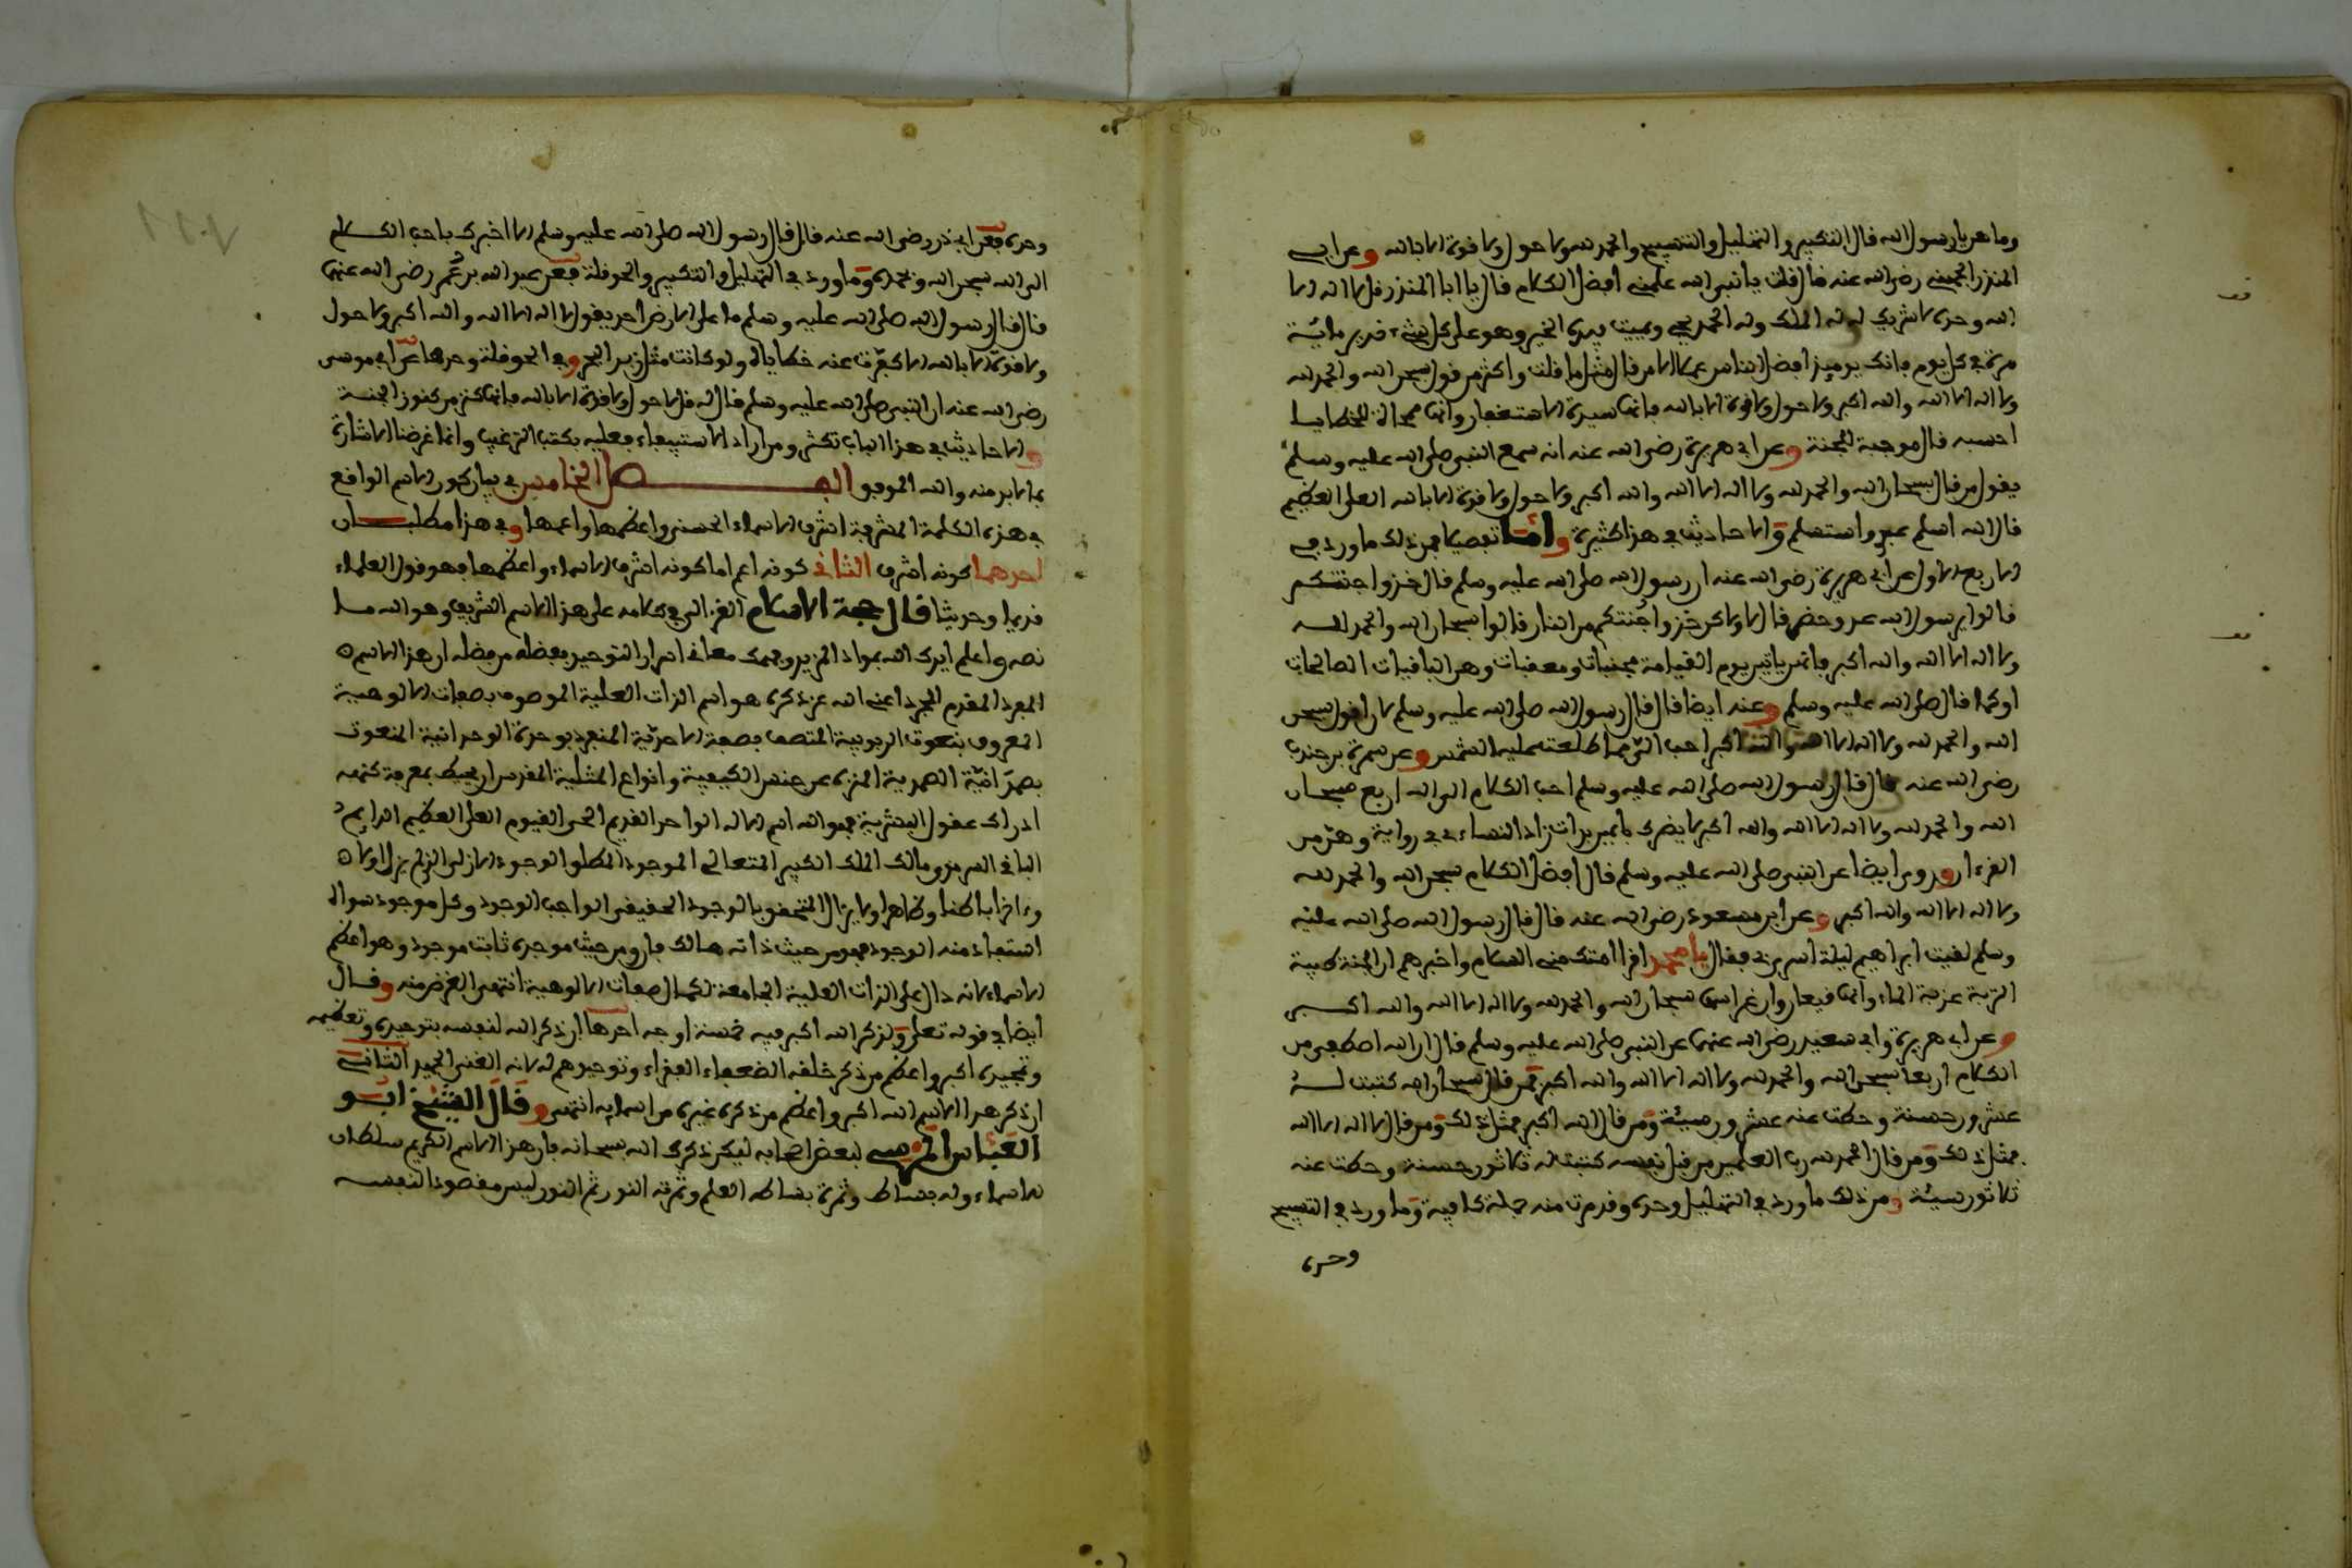 وما هن يا رسول الله قال التكبير والتهليل والتسبيح والحمد لله ولا حول ولا قوة الا بالله وعن ابي
المنذر الجهني رضي الله عنه قال قلت يا نبي الله علمني افضل الكلام قال يا ابا المنذر قل لا اله الا
الله وحده لا شريك له له الملك وله الحمد يحي ويميت بيده الخير وهو على كل شيء قدير مائة
مرة في كل يوم فانك يوميذ افضل الناس عملا الا من قال مثل ما قلت واكثر من قول سبحن الله والحمد لله
ولا اله الا الله والله اكبر ولا حول ولا قوة الا بالله فانها سيدة الاستغفار وانها ممحاة للخطايا
احسبه قال موجبة للجنة وعن ابي هريرة رضي الله عنه انه سمع النبي صلى الله عليه وسلم
يقول من قال سبحان الله والحمد لله ولا اله الا الله والله اكبر ولا حول ولا قوة الا بالله العلي العظيم
قال الله اسلم عبدي واستسلم والاحاديث في هذا كثيرة واما تفصيلا فمن ذلك ما ورد في
الاربع الاول عن ابي هريرة رضي الله عنه ان رسول الله صلى الله عليه وسلم قال خذوا جنتكم
قالوا يرسول الله عدو حضر قال لا ولاكن خذوا جنتكم من النار قالوا سبحان الله والحمد لله
ولا اله الا الله والله اكبر فانهن ياتين يوم القيامة مجنبات ومعقبات وهن الباقيات الصالحات
او كما قال صلى الله عليه وسلم وعنه ايضا قال قال رسول الله صلى الله عليه وسلم لان اقول سبحن
الله والحمد لله ولا اله الا الله والله اكبر احب الي مما طلعت عليه الشمس وعن سمرة بن جندب
رضي الله عنه قال قال رسول الله صلى الله عليه وسلم احب الكلام الى الله اربع سبحان
الله والحمد لله ولا اله الا الله والله اكبر لا يضرك بايهن بدات زاد النساءي في رواية وهن من
القرءان وروى ايضا عن النبي صلى الله عليه وسلم قال افضل الكلام سبحن الله والحمد لله
ولا اله الا الله والله اكبر وعن ابن مسعود رضي الله عنه قال قال رسول الله صلى الله عليه
وسلم لقيت ابراهيم ليلة اسري بي فقال يا محمد اقرا امتك مني السلام واخبرهم ان الجنة طيبة
التربة عذبة الماء وانها قيعان وان غراسها سبحان الله والحمد لله ولا اله الا الله والله اكبر
وعن ابي هريرة وابي سعيد رضي الله عنهما عن النبي صلى الله عليه وسلم قال ان الله اصطفى من
الكلام اربعا سبحن الله والحمد لله ولا اله الا الله والله اكبر فمن قال سبحان الله كتبت له
عشرون حسنة وحطت عنه عشرون سيئة ومن قال الله اكبر فمثل ذلك ومن قال لا اله الا الله
فمثل ذلك ومن قال الحمد لله رب العلمين من قبل نفسه كتبت له ثلاثون حسنة وحطت عنه
ثلاثون سيئة ومن ذلك ما ورد في التهليل وحده وقد مرت منه جملة كافية وما ورد في التسبيح
وحده
وحده فعن ابي ذر رضي الله عنه قال قال رسول الله صلى الله عليه وسلم الا اخبرك باحب الكلام
الى الله سبحن الله وبحمده وما ورد في التهليل والتكبير والحوقلة فعن عبد الله بن عمر رضي الله عنهما
قال قال رسول الله صلى الله عليه وسلم ما على الارض احد يقول لا اله الا الله والله اكبر ولا حول
ولا قوة الا بالله الا كفرت عنه خطاياه ولو كانت مثل زبد البحر وفي الحوقلة وحدها عن ابي موسى
رضي الله عنه ان النبي صلى الله عليه وسلم قال له قل لا حول ولا قوة الا بالله فانها كنز من كنوز الجنة
والاحاديث في هذا الباب تكثر ومن اراد الاستيفاء فعليه بكتب الترغيب وانما غرضنا الاشارة
بما لا بد منه والله الموفق الفصل الخامس في بيان كون الاسم الواقع
في هذه الكلمة المشرفة اشرف الاسماء الحسنى واعظمها واعمها وفي هذا مطلبان
احدهما كونه اشرف الثاني كونه اعم اما كونه اشرف الاسماء واعظمها فهو قول العلماء
قديما وحديثا قال حجة الاسلام الغزالي في كلامه على هذا الاسم الشريف وهو الله ما
نصه واعلم ايدك الله بمواد المزيد وفهمك معاني اسرار التوحيد بفضله من فضله ان هذا الاسم
المفرد المقدم المجرد اعني الله عز ذكره هو اسم الذات العلية الموصوف بصفات الالوهية
المعروف بنعوت الربوبية المتصف بصفة الاحدية المنفرد بوحدة الوحدانية المنعوت
بصمدانية الصمدية المنزه عن جنس الكيفية وانواع المثلية المقدس ان يحيط بمعرفة كنهه
ادراك عقول البشرية فهو الله اسم الاله الواحد القديم الحي القيوم العلي العظيم الدايم
الباقي السرمدي مالك الملك الكبير المتعالي الموجود المطلق الوجود الازلي الذي لم يزل اولا
وءاخرا باطنا وظاهرا ولا يزال المتحقق بالوجود الحقيقي الواجب الوجود وكل موجود سواه
استفاد منه الوجود فهو من حيث ذاته هالك فان ومن حيث موجده ثابت موجود وهو اعظم
الاسماء لانه دال على الذات العلية الجامعة لكمال صفات الالوهية انتهى الغرض منه وقال
ايضا في قوله تعلى ولذكر الله اكبر فيه خمسة اوجه احدها ان ذكر الله لنفسه بتوحيده وتعظيمه
وتمجيده اكبر واعظم من ذكر خلقه الضعفاء الفقراء وتوحيدهم له لانه الغني الحميد الثاني
ان ذكر هذا الاسم الله اكبر واعظم من ذكره غيره من اسمايه انتهى وقال الشيخ ابو
العباس المرسي لبعض اصحابه ليكن ذكرك الله سبحانه فان هذا الاسم الكريم سلطان
الاسماء وله بساط وثمرة بساطه العلم وثمرته النور ثم النور ليس مقصودا لنفسه